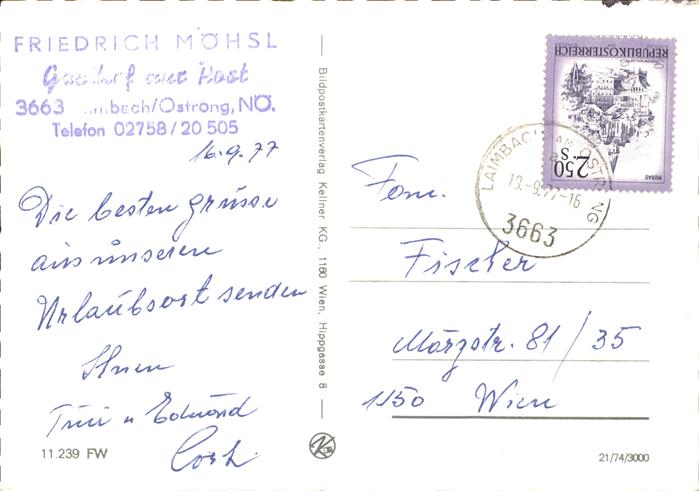 FRIEDRICH MÖHSL
Gasthof zur Post
3663 ...mbach/Ostrong, NÖ.
Telefon 02758/20 505
16.9.77
Die besten Grüsse
aus unseren
Urlaubsort senden
Ihnen
u Edmund
11.239 FW
Bildpostkartenverlag Kellner KG., 1160 Wien, Hippgasse 8
REPUBLIK ÖSTERREICH
S 2.50
MURAU
LAIMBACH AM OSTRONG
19.-9.77-16
3663
Fam.
Fischer
Märzstr. 81/35
1150 Wien
21/74/3000